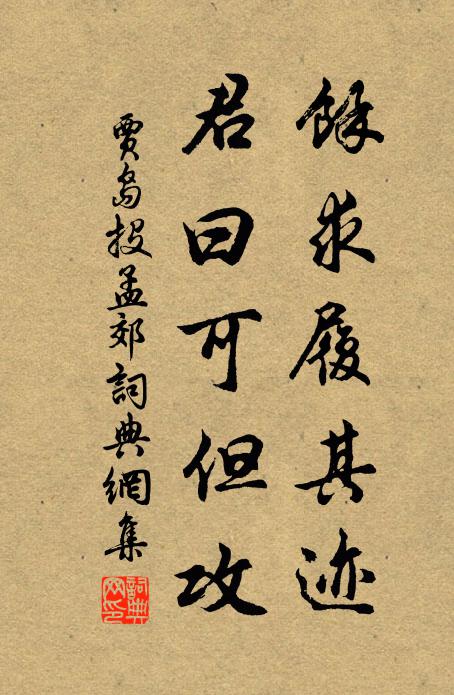 餘求履其迹
君曰可但攻
賈島投孟郊詞典網集
詞典网印